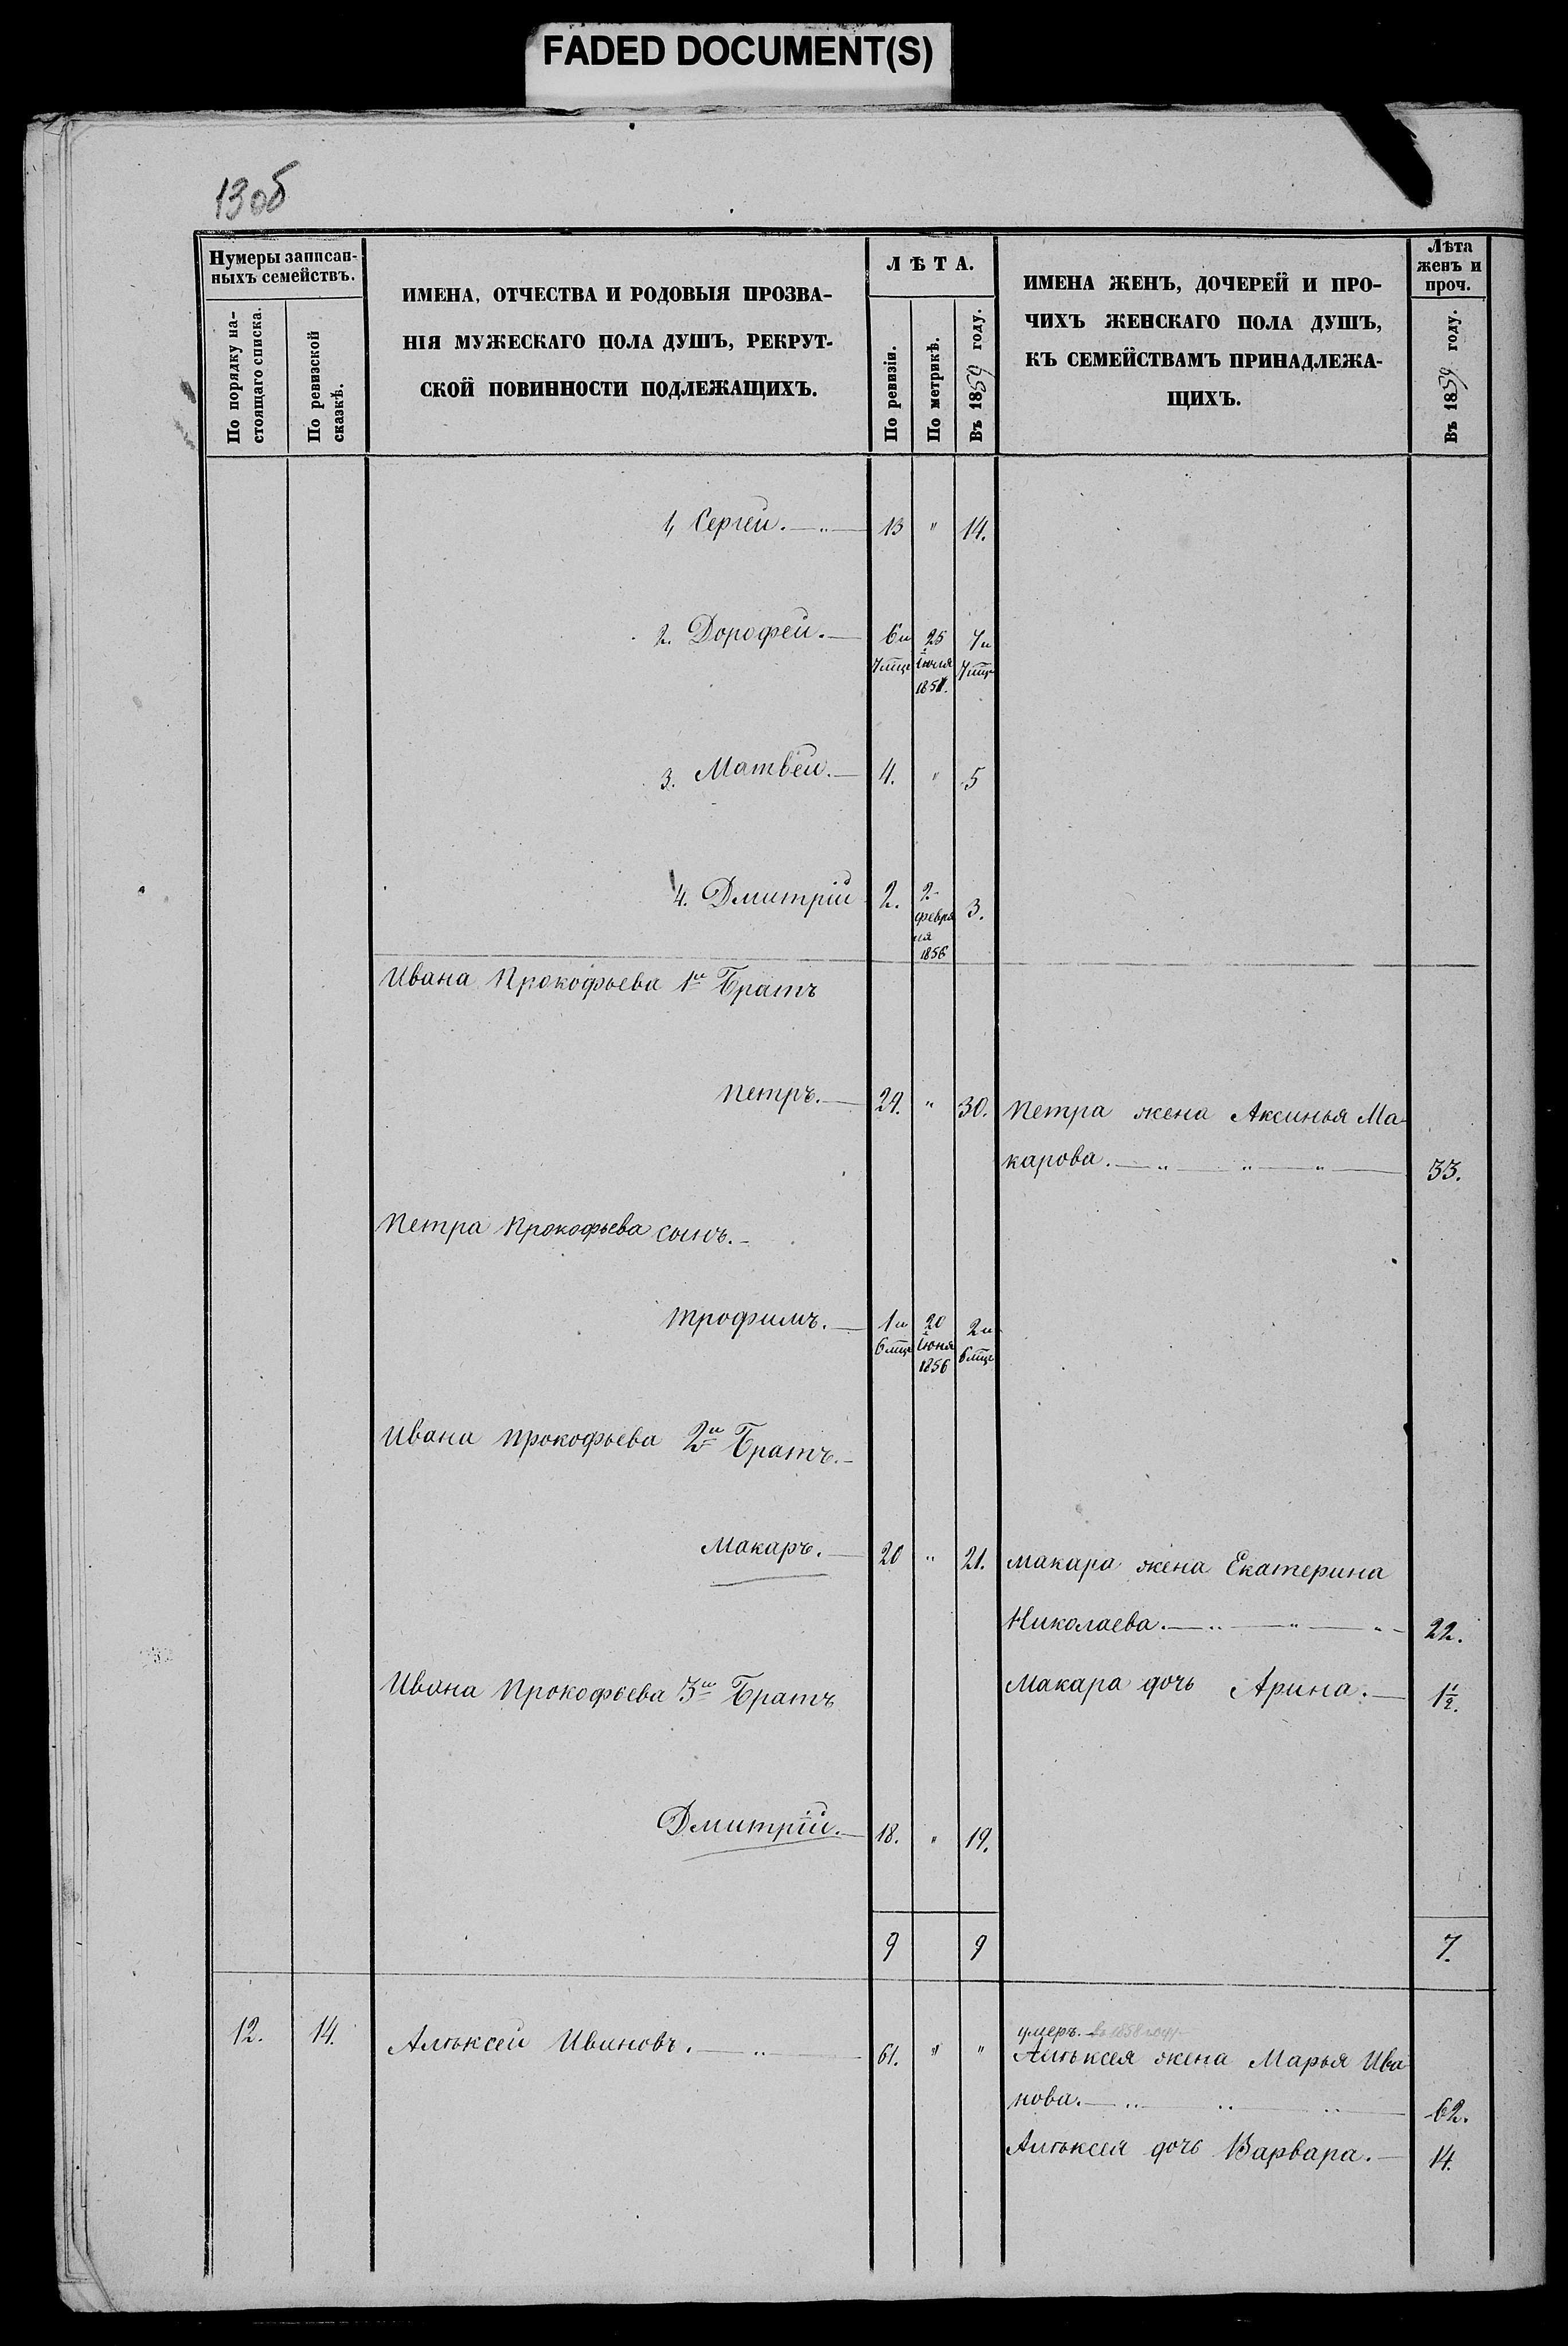 FADED DOCUMENT(S)
13об
Нумеры записан-
ныхъ семействъ.
По порядку на-
стоящаго списка.
По ревизской
сказкѣ.
ИМЕНА, ОТЧЕСТВА И РОДОВЫЯ ПРОЗВА-
НІЯ МУЖЕСКАГО ПОЛА ДУШЪ, РЕКРУТ-
СКОЙ ПОВИННОСТИ ПОДЛЕЖАЩИХЪ.
ЛѢТА.
По ревизіи.
По метрикѣ.
Въ 1859 году.
ИМЕНА ЖЕНЪ, ДОЧЕРЕЙ И ПРО-
ЧИХЪ ЖЕНСКАГО ПОЛА ДУШЪ,
КЪ СЕМЕЙСТВАМЪ ПРИНАДЛЕЖА-
ЩИХЪ.
Лѣта
женъ и
проч.
Въ 1859 году.
1, Сергей. 13 " 14.
2. Дорофей. 6и 25 7и
7мце іюля 7мце
1851.
3. Матвѣй. 4. " 5
4. Дмитрій 2. 2 3.
февра
ля
1856
Ивана Прокофьева 1й Братъ
Петръ. 29. " 30. Петра жена Аксинья Ма-
карова. " " " 33.
Петра Прокофьева сынъ.
Трофимъ. 1и 20 2и
6мце іюня 6мце
1856
Ивана Прокофьева 2й Братъ.
Макаръ. 20 " 21. Макара жена Екатерина
Николаева. " " " 22.
Ивана Прокофьева 3й Братъ Макара дочь Арина. 1½.
Дмитрій. 18. " 19.
9 9 7.
умеръ. въ 1858 году
12. 14. Алѣксей Ивановъ. " 61. " " Алѣксея жена Марья Ива
нова. " " " 62.
Алѣксея дочь Варвара. 14.